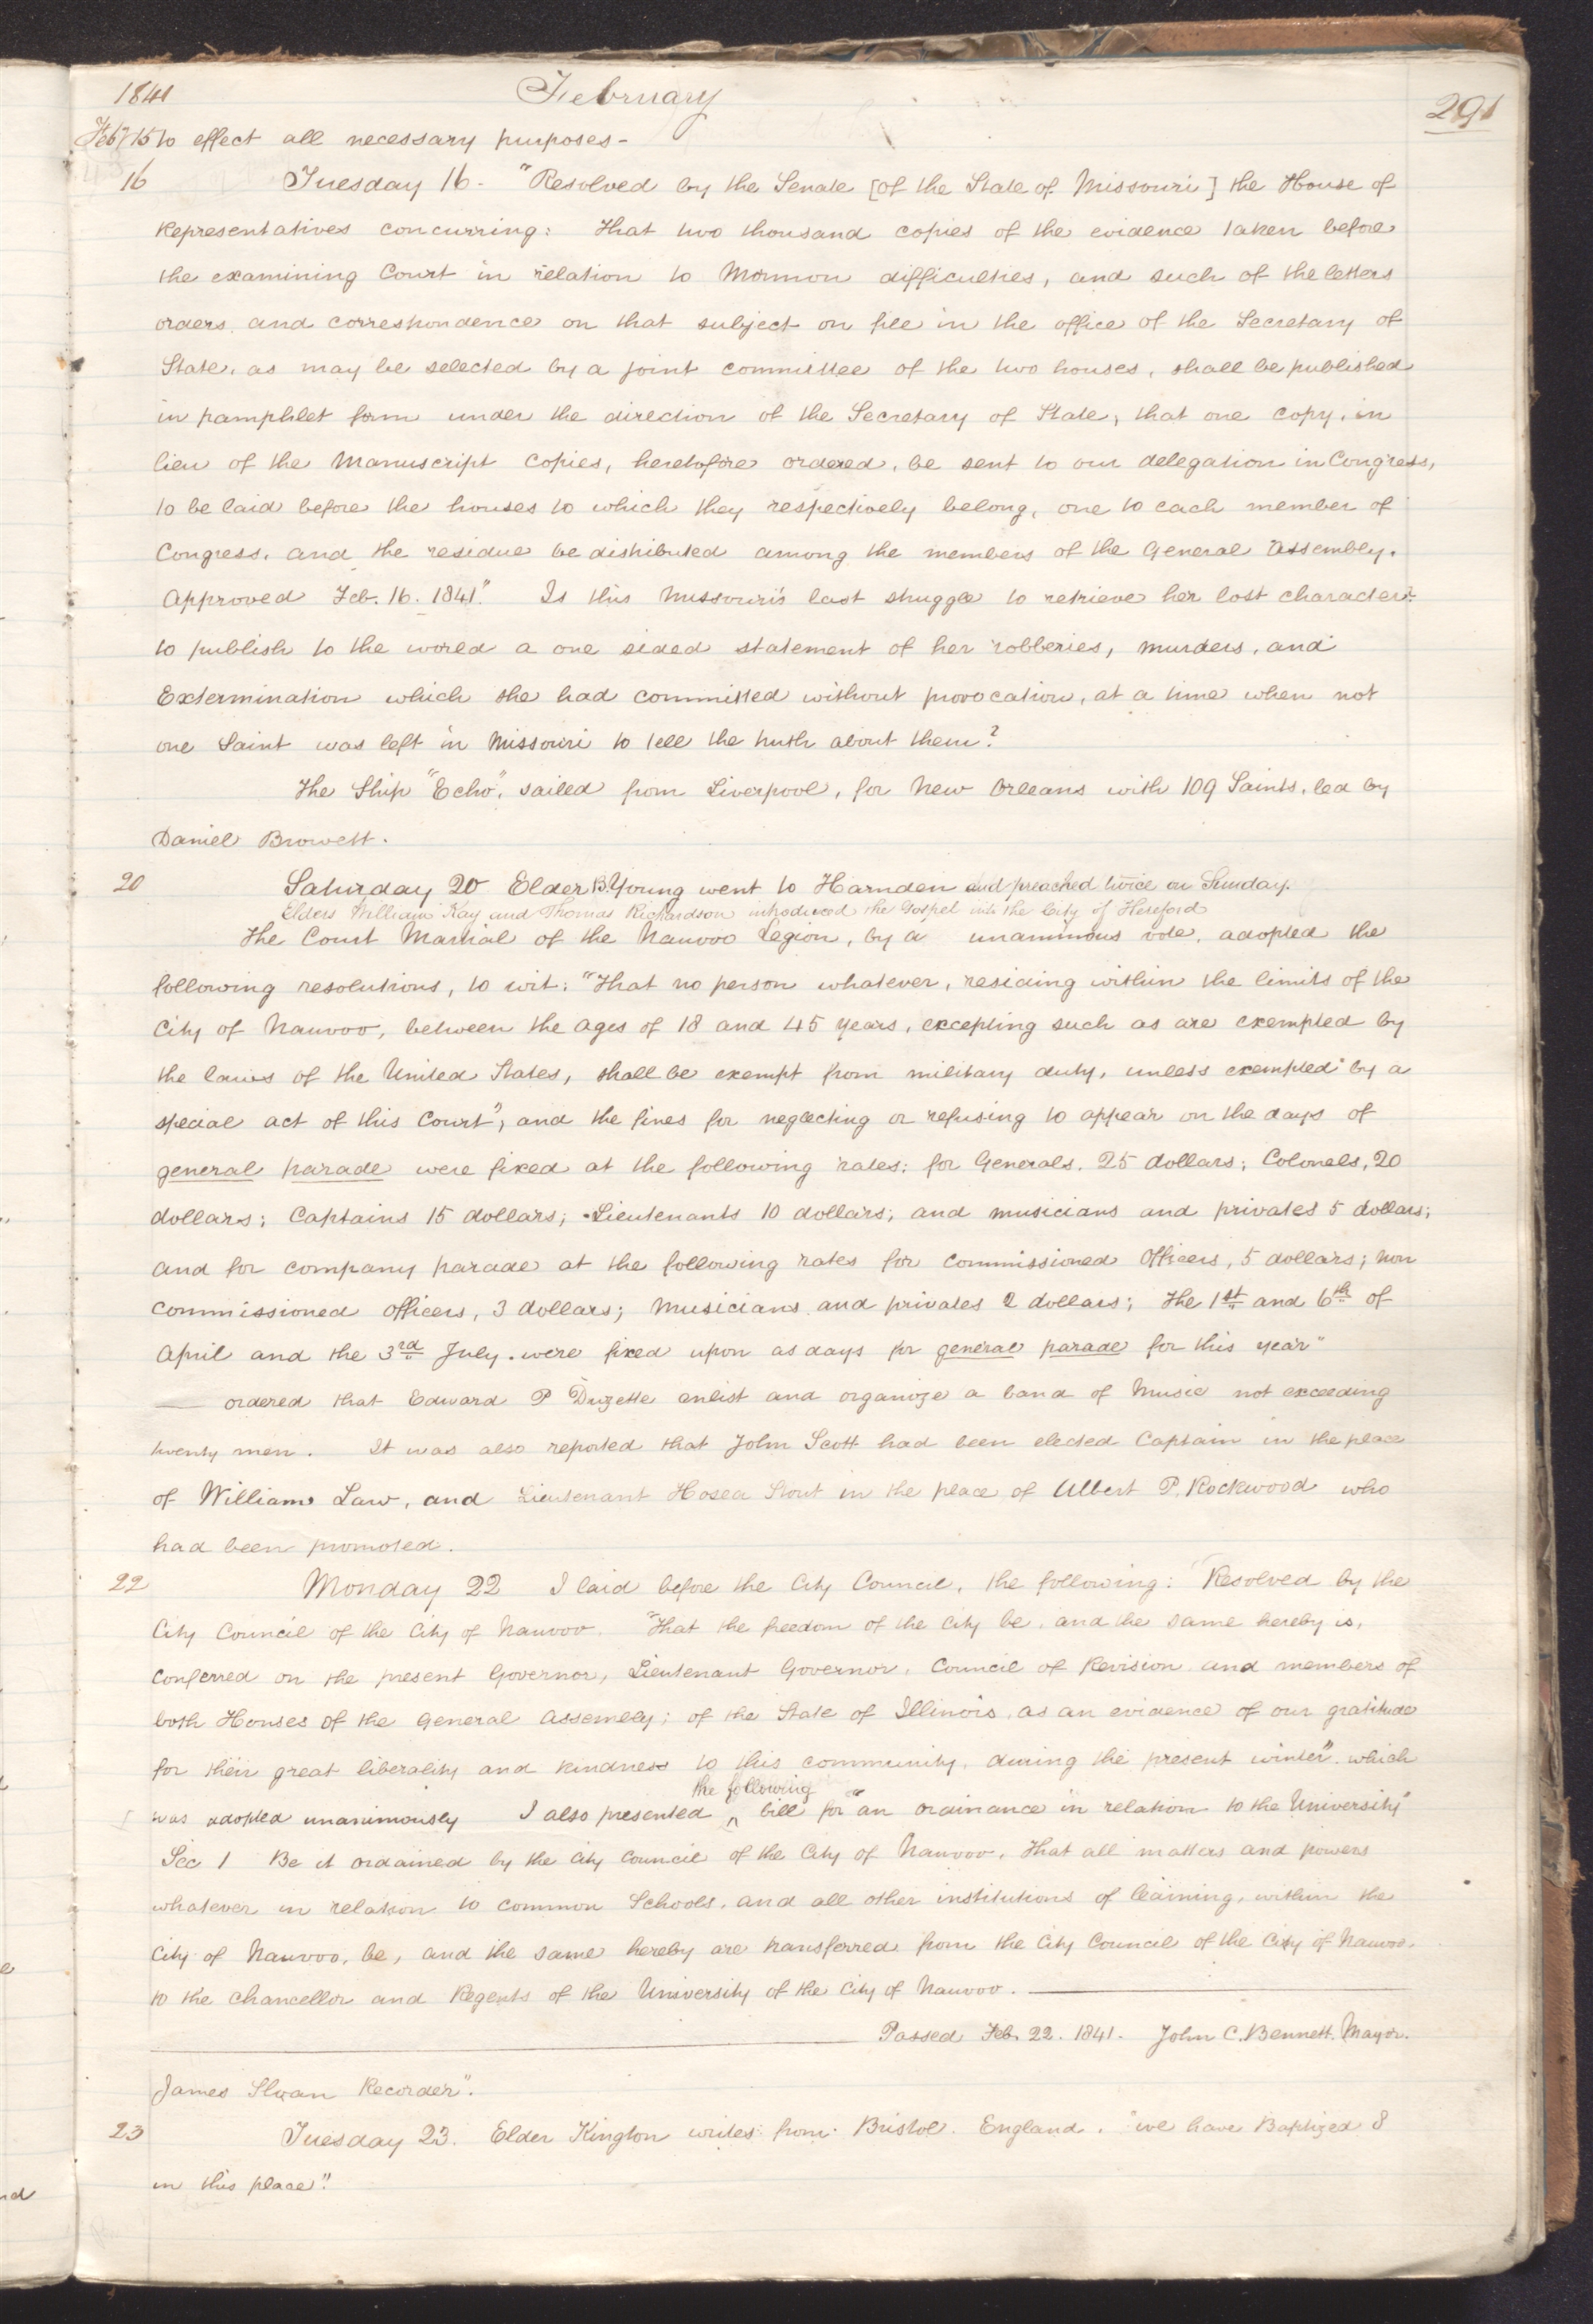 1841 February 291
Feby 15 to effect all necessary purposes-
16 Tuesday 16- "Resolved by the Senate [of the State of Missouri] the House of
Representatives concurring: That two thousand copies of the evidence taken before
the examining Court in relation to Mormon difficulties, and such of the letters
orders and correspondence on that subject on file in the office of the Secretary of
State, as may be selected by a joint committee of the two houses, shall be published
in pamphlet form under the direction of the Secretary of State, that one copy, in
lieu of the Manuscript Copies, heretofore ordered, be sent to our delegation in Congress,
to be laid before the houses to which they respectively belong, one to each member of
Congress, and the residue be distributed among the members of the General Assembly.
Approved Feb. 16. 1841." Is this Missouri's last struggle to retrieve her lost character?
to publish to the world a one sided statement of her robberies, murders, and
Extermination which she had committed without provocation, at a time when not
one Saint was left in Missouri to tell the truth about them?
The Ship "Echo", sailed from Liverpool, for New Orleans with 109 Saints, led by
Daniel Browett.
20 Saturday 20 Elder B. Young went to Harnden and preached twice on Sunday.
Elders William Kay and Thomas Richardson introduced the Gospel into the City of Hereford
The Court Martial of the Nauvoo Legion, by a unanimous vote, adopted the
following resolutions, to wit: "That no person whatever, residing within the limits of the
City of Nauvoo, between the ages of 18 and 45 years, excepting such as are exempted by
the laws of the United States, shall be exempt from military duty, unless exempted by a
special act of this Court", and the fines for neglecting or refusing to appear on the days of
general parade were fixed at the following rates: for Generals, 25 dollars; Colonels, 20
dollars; Captains 15 dollars; Lieutenants 10 dollars; and musicians and privates 5 dollars;
and for company parade at the following rates for commissioned Officers, 5 dollars; non
commissioned officers, 3 dollars; musicians and privates 2 dollars; The 1st and 6th of
April and the 3rd July were fixed upon as days for general parade for this year"
— ordered that Edward P Duzette enlist and organize a band of Music not exceeding
twenty men. It was also reported that John Scott had been elected Captain in the place
of William Law, and Lieutenant Hosea Stout in the place of Albert P. Rockwood who
had been promoted.
22 Monday 22 I laid before the City Council, the following: "Resolved by the
City Council of the City of Nauvoo. "That the freedom of the City be, and the same hereby is,
Conferred on the present Governor, Lieutenant Governor, Council of Revision and members of
both Houses of the General Assembly; of the State of Illinois, as an evidence of our gratitude
for their great liberality and kindness to this community, during the present winter", which
was adopted unanimously I also presented ^ the following bill for "an ordinance in relation to the University"
Sec 1 Be it ordained by the City Council of the City of Nauvoo. That all matters and powers
whatever in relation to common Schools, and all other institutions of learning, within the
City of Nauvoo, be, and the same hereby are transferred from the City Council of the City of Nauvoo,
to the Chancellor and Regents of the University of the City of Nauvoo. —
Passed Feb. 22. 1841. John C. Bennett. Mayor.
James Sloan Recorder".
23 Tuesday 23. Elder Kington writes from Bristol. England. "we have Baptized 8
in this place".